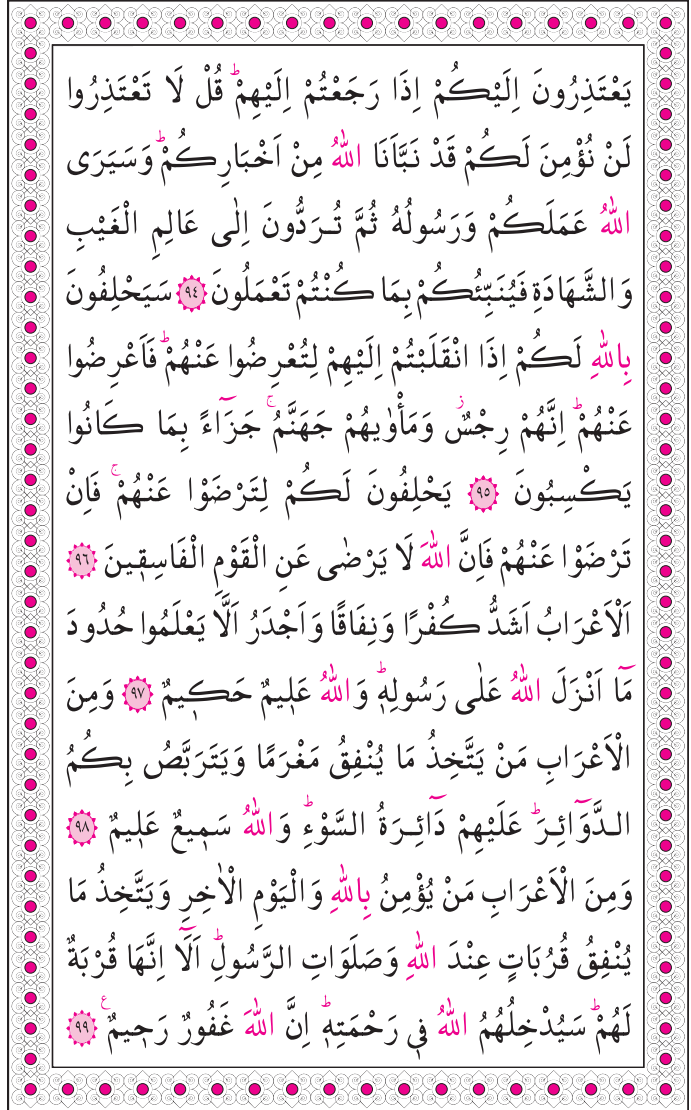 يَعْتَذِرُونَ اِلَيْكُمْ اِذَا رَجَعْتُمْ اِلَيْهِمْؕ قُلْ لَا تَعْتَذِرُوا
لَنْ نُؤْمِنَ لَكُمْ قَدْ نَبَّاَنَا اللّٰهُ مِنْ اَخْبَارِكُمْؕ وَسَيَرَى
اللّٰهُ عَمَلَكُمْ وَرَسُولُهُ ثُمَّ تُرَدُّونَ اِلٰى عَالِمِ الْغَيْبِ
وَالشَّهَادَةِ فَيُنَبِّئُكُمْ بِمَا كُنْتُمْ تَعْمَلُونَ ﴿٩٤﴾ سَيَحْلِفُونَ
بِاللّٰهِ لَكُمْ اِذَا انْقَلَبْتُمْ اِلَيْهِمْ لِتُعْرِضُوا عَنْهُمْؕ فَاَعْرِضُوا
عَنْهُمْؕ اِنَّهُمْ رِجْسٌؗ وَمَأْوٰيهُمْ جَهَنَّمُۚ جَزَٓاءً بِمَا كَانُوا
يَكْسِبُونَ ﴿٩٥﴾ يَحْلِفُونَ لَكُمْ لِتَرْضَوْا عَنْهُمْۚ فَاِنْ
تَرْضَوْا عَنْهُمْ فَاِنَّ اللّٰهَ لَا يَرْضٰى عَنِ الْقَوْمِ الْفَاسِقٖينَ ﴿٩٦﴾
اَلْاَعْرَابُ اَشَدُّ كُفْرًا وَنِفَاقًا وَاَجْدَرُ اَلَّا يَعْلَمُوا حُدُودَ
مَٓا اَنْزَلَ اللّٰهُ عَلٰى رَسُولِهٖؕ وَاللّٰهُ عَلٖيمٌ حَكٖيمٌ ﴿٩٧﴾ وَمِنَ
الْاَعْرَابِ مَنْ يَتَّخِذُ مَا يُنْفِقُ مَغْرَمًا وَيَتَرَبَّصُ بِكُمُ
الدَّوَٓائِرَؕ عَلَيْهِمْ دَٓائِرَةُ السَّوْءِؕ وَاللّٰهُ سَمٖيعٌ عَلٖيمٌ ﴿٩٨﴾
وَمِنَ الْاَعْرَابِ مَنْ يُؤْمِنُ بِاللّٰهِ وَالْيَوْمِ الْاٰخِرِ وَيَتَّخِذُ مَا
يُنْفِقُ قُرُبَاتٍ عِنْدَ اللّٰهِ وَصَلَوَاتِ الرَّسُولِؕ اَلَٓا اِنَّهَا قُرْبَةٌ
لَهُمْؕ سَيُدْخِلُهُمُ اللّٰهُ فٖي رَحْمَتِهٖؕ اِنَّ اللّٰهَ غَفُورٌ رَحٖيمٌ ࣖ ﴿٩٩﴾